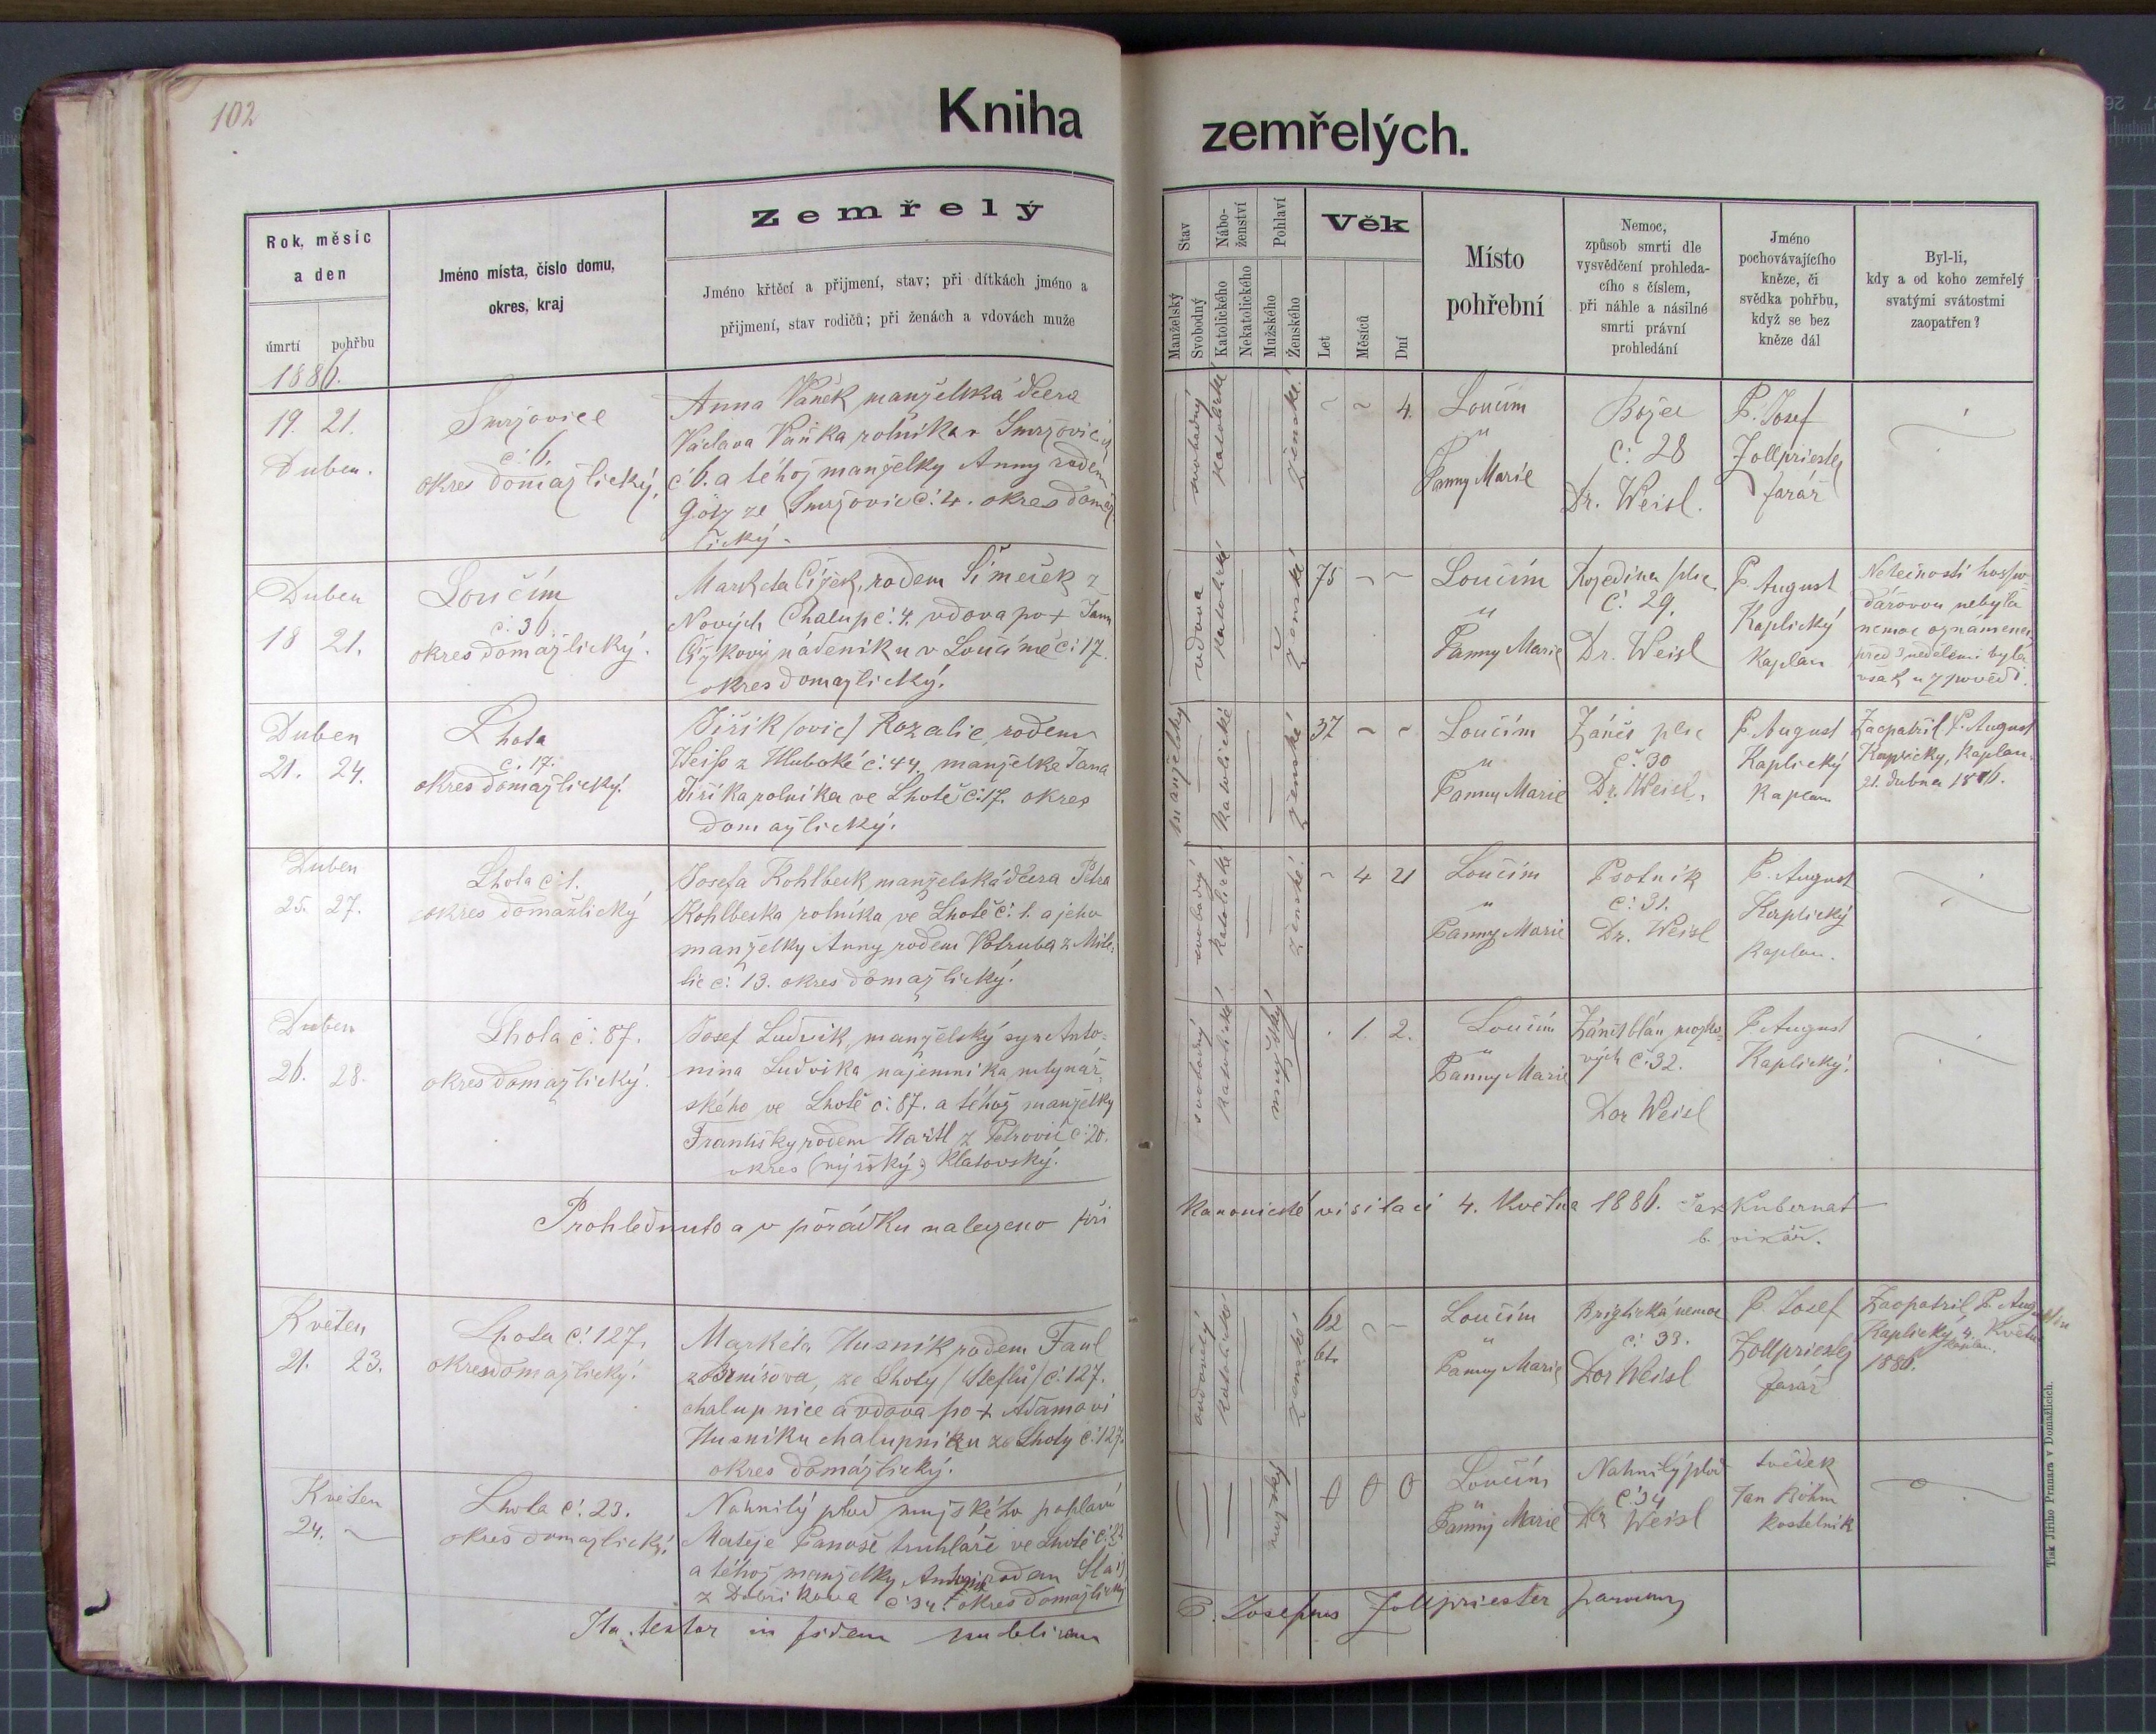 102
Kniha zemřelých.
Rok, měsíc a den
úmrtí
pohřbu
Jméno místa, číslo domu, okres, kraj
Zemřelý
Jméno křtěcí a přijmení, stav; při dítkách jméno a
přijmení, stav rodičů; při ženách a vdovách muže
Stav
Manželský
Svobodný
Nábo-
ženství
Katolického
Nekatolického
Pohlaví
Mužského
Ženského
Věk
Let
Měsíců
Dní
Místo
pohřební
Nemoc,
způsob smrti dle
vysvědčení prohleda-
cího s číslem,
při náhle a násilné
smrti právní
prohledání
Jméno
pochovávajícího
kněze, či
svědka pohřbu,
když se bez
kněze dál
Byl-li,
kdy a od koho zemřelý
svatými svátostmi
zaopatřen?
1886.
19. 21.
Duben.
Smržovice
č. 6.
okres domažlický.
Anna Vaněk manželská dcera
Václava Vaňka rolníka v Smržovicích
č 6. a téhož manželky Anny rodem
Götz ze Smržovic č. 4. okres domaž
lický.
svobodný
katolické
ženské.
4.
Loučim
"
Panny Marie
Božec
č. 28
Dr. Weisl.
P. Josef
Zollpriester
farář
Duben
18 21.
Loučím
č. 36.
okres domažlický.
Markéta Čížek, rodem Šimeček z
Nových Chalup č. 4. vdova po + Janu
Čížkovi nádeníku v Loučimě č. 17.
okres domažlický.
vdova
katolické
ženské
75 - -
Loučim
"
Panny Marie
Rozedma plic
č. 29.
Dr. Weisl
P. August
Kaplický
Kaplan
Netečností hospo-
dářovou nebyla
nemoc oznámena
před 3 nedělemi byla
však u zpovědi.
Duben
21. 24.
Lhota
č. 17.
okres domažlický.
Jiřík (ovic) Rozalie, rodem
Weiss z Hluboké č. 44, manželka Jana
Jiříka rolníka ve Lhotě č. 17. okres
domažlický.
manželský
katolické
ženské
37 - -
Loučim
"
Panny Marie
Zánět plic
č. 30
Dr. Weisl.
P. August
Kaplický
Kaplan
Zaopatřil P. August
Kaplický, Kaplan.
21. dubna 1886.
Duben
25. 27.
Lhota č. 1.
okres domažlický
Josefa Kohlbeck manželská dcera Petra
Kohlbecka rolníka ve Lhotě č. 1. a jeho
manželky Anny rodem Votruba z Mile-
lic č. 13. okres domažlický.
svobodný
katolické
ženské.
4 21
Loučim
"
Panny Marie
Psotník
č. 31.
Dr. Weisl
P. August
Kaplický
Kaplan.
Duben
26. 28.
Lhota č. 87.
okres domažlický.
Josef Ludvík, manželský syn Anto-
nína Ludvíka najemníka mlynář-
ského ve Lhotě č. 87. a téhož manželky
Františky rodem Hartl z Petrovic č. 20.
okres (nýrský) Klatovský.
svobodný
katolické
mužský
1. 2.
Loučim
"
Panny Marie
Zánět blán mozko-
vých č. 32.
Dor Weisl
P. August
Kaplický.
Prohlednuto a v pořádku nalezeno při kanonické visitaci 4. Května 1886. Jan Kubernat
b. vikář.
Květen
21. 23.
Lhota č. 127.
okres domažlický.
Markéta Husník rodem Faul
ze Lhoty (Steflů) č. 127.
chalupnice a vdova po + Adamovi
Husníku chalupníku ze Lhoty č. 127.
okres domažlický.
ovdovělý
katolické
ženské
62
let
Loučím
"
Panny Marie
Brigtická nemoc
č. 33.
Dor Weisl
P. Josef
Zollpriester
farář
Zaopatřil P. Augustin
Kaplický, 4. Května
kaplan.
1886.
Květen
24.
Lhota č. 23.
okres domažlický.
Nahnilý plod mužského pohlaví
Matěje Panoše truhláře ve Lhotě č. 23
a téhož manželky rodem
z Dobříkova č 34. okres domažlický
mužský
0 0 0
Loučím
"
Panny Marie
Nahnilý plod
č. 34
Dr Weisl
svědek
Jan Böhm
kostelník
Ita testor in fidem publicam P. Josephus Zollpriester parochus
Tisk Jiřího Prunara v Domažlicích.